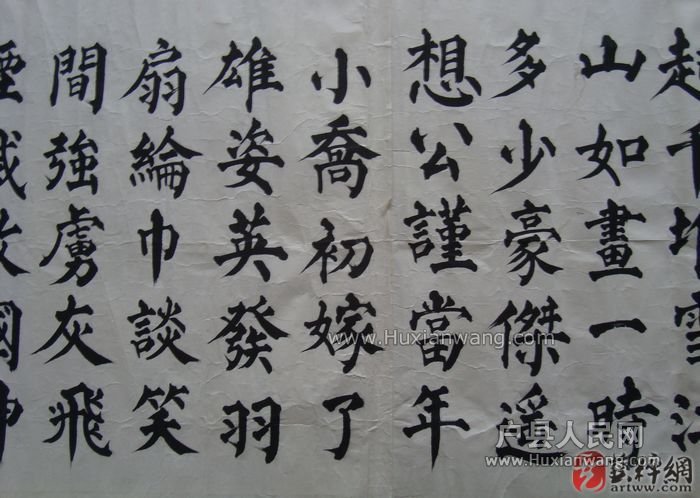 起千堆雪江
山如畫一時
多少豪傑遥
想公謹當年
小喬初嫁了
雄姿英發羽
扇綸巾談笑
間強虜灰飛
煙滅故國神
www.Huxianwang.com
户县人民网
www.Huxianwang.com
artww.com